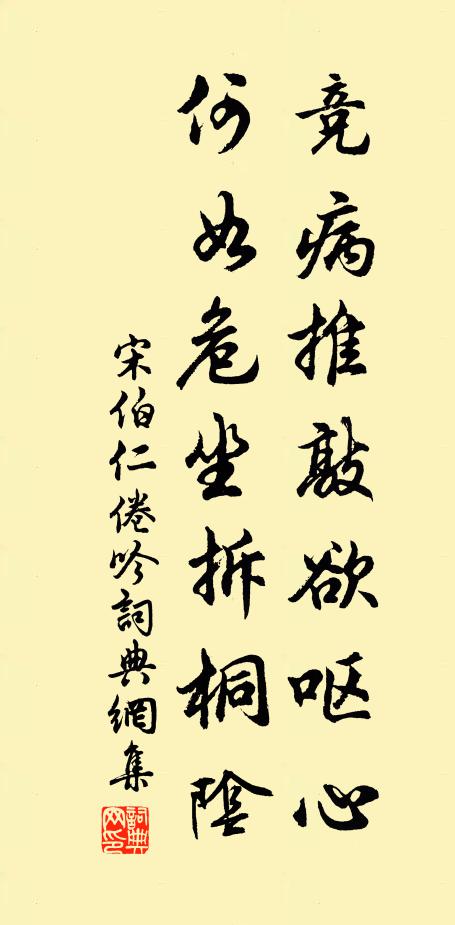 竞病推敲欲呕心
何如危坐拆桐陰
宋伯仁倦吟詞典網集
詞典网印